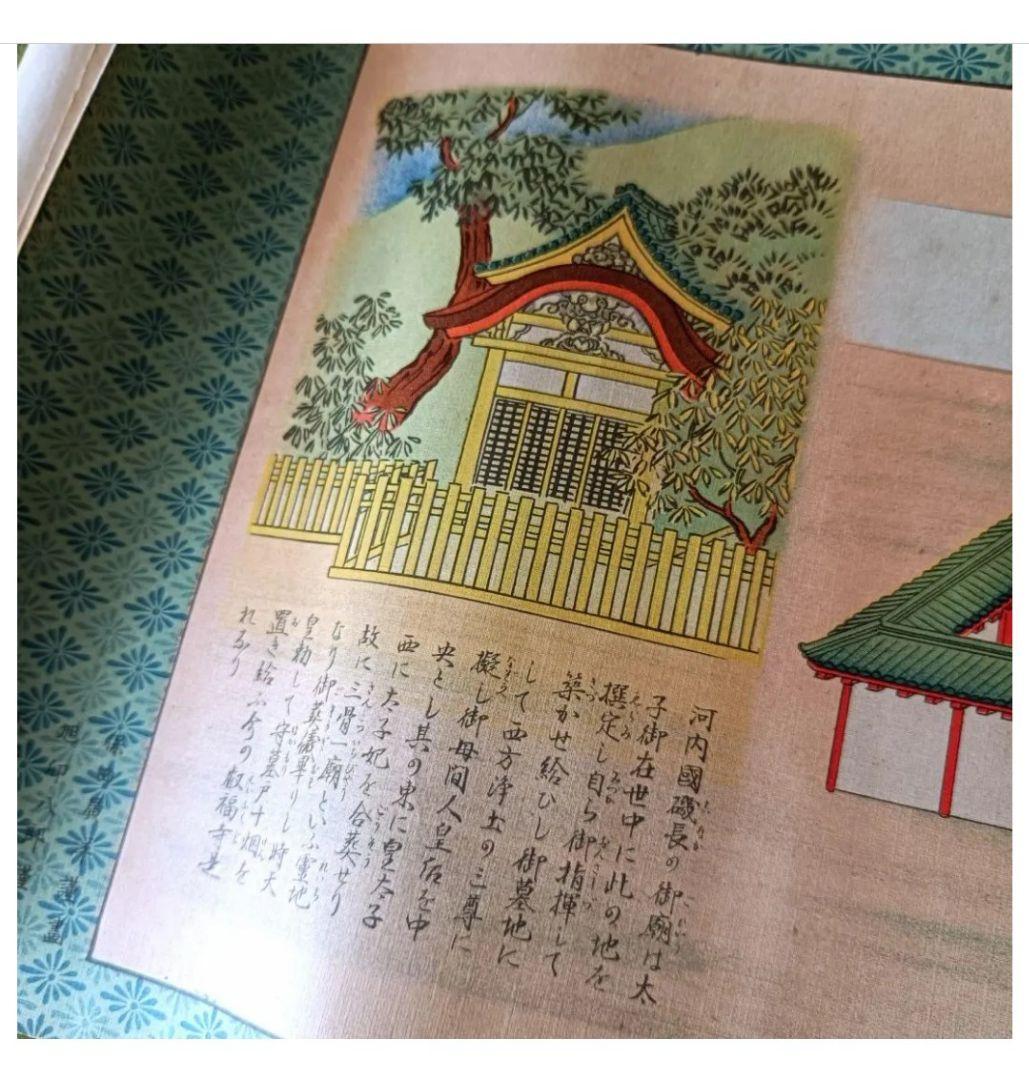 河内國磯長の御廟は太
子御在世中に此の地を
撰定し自ら御指揮して
築かせ給ひし御墓地に
して西方浄土の三尊に
擬し御母間人皇后を中
央とし其の東に皇太子
西に太子妃を合葬せり
故に三骨一廟といふ霊地
なり御葬儀畢りし時天
皇勅して守墓戸十烟を
置き給ふ今の叡福寺是
れなり
謹畫